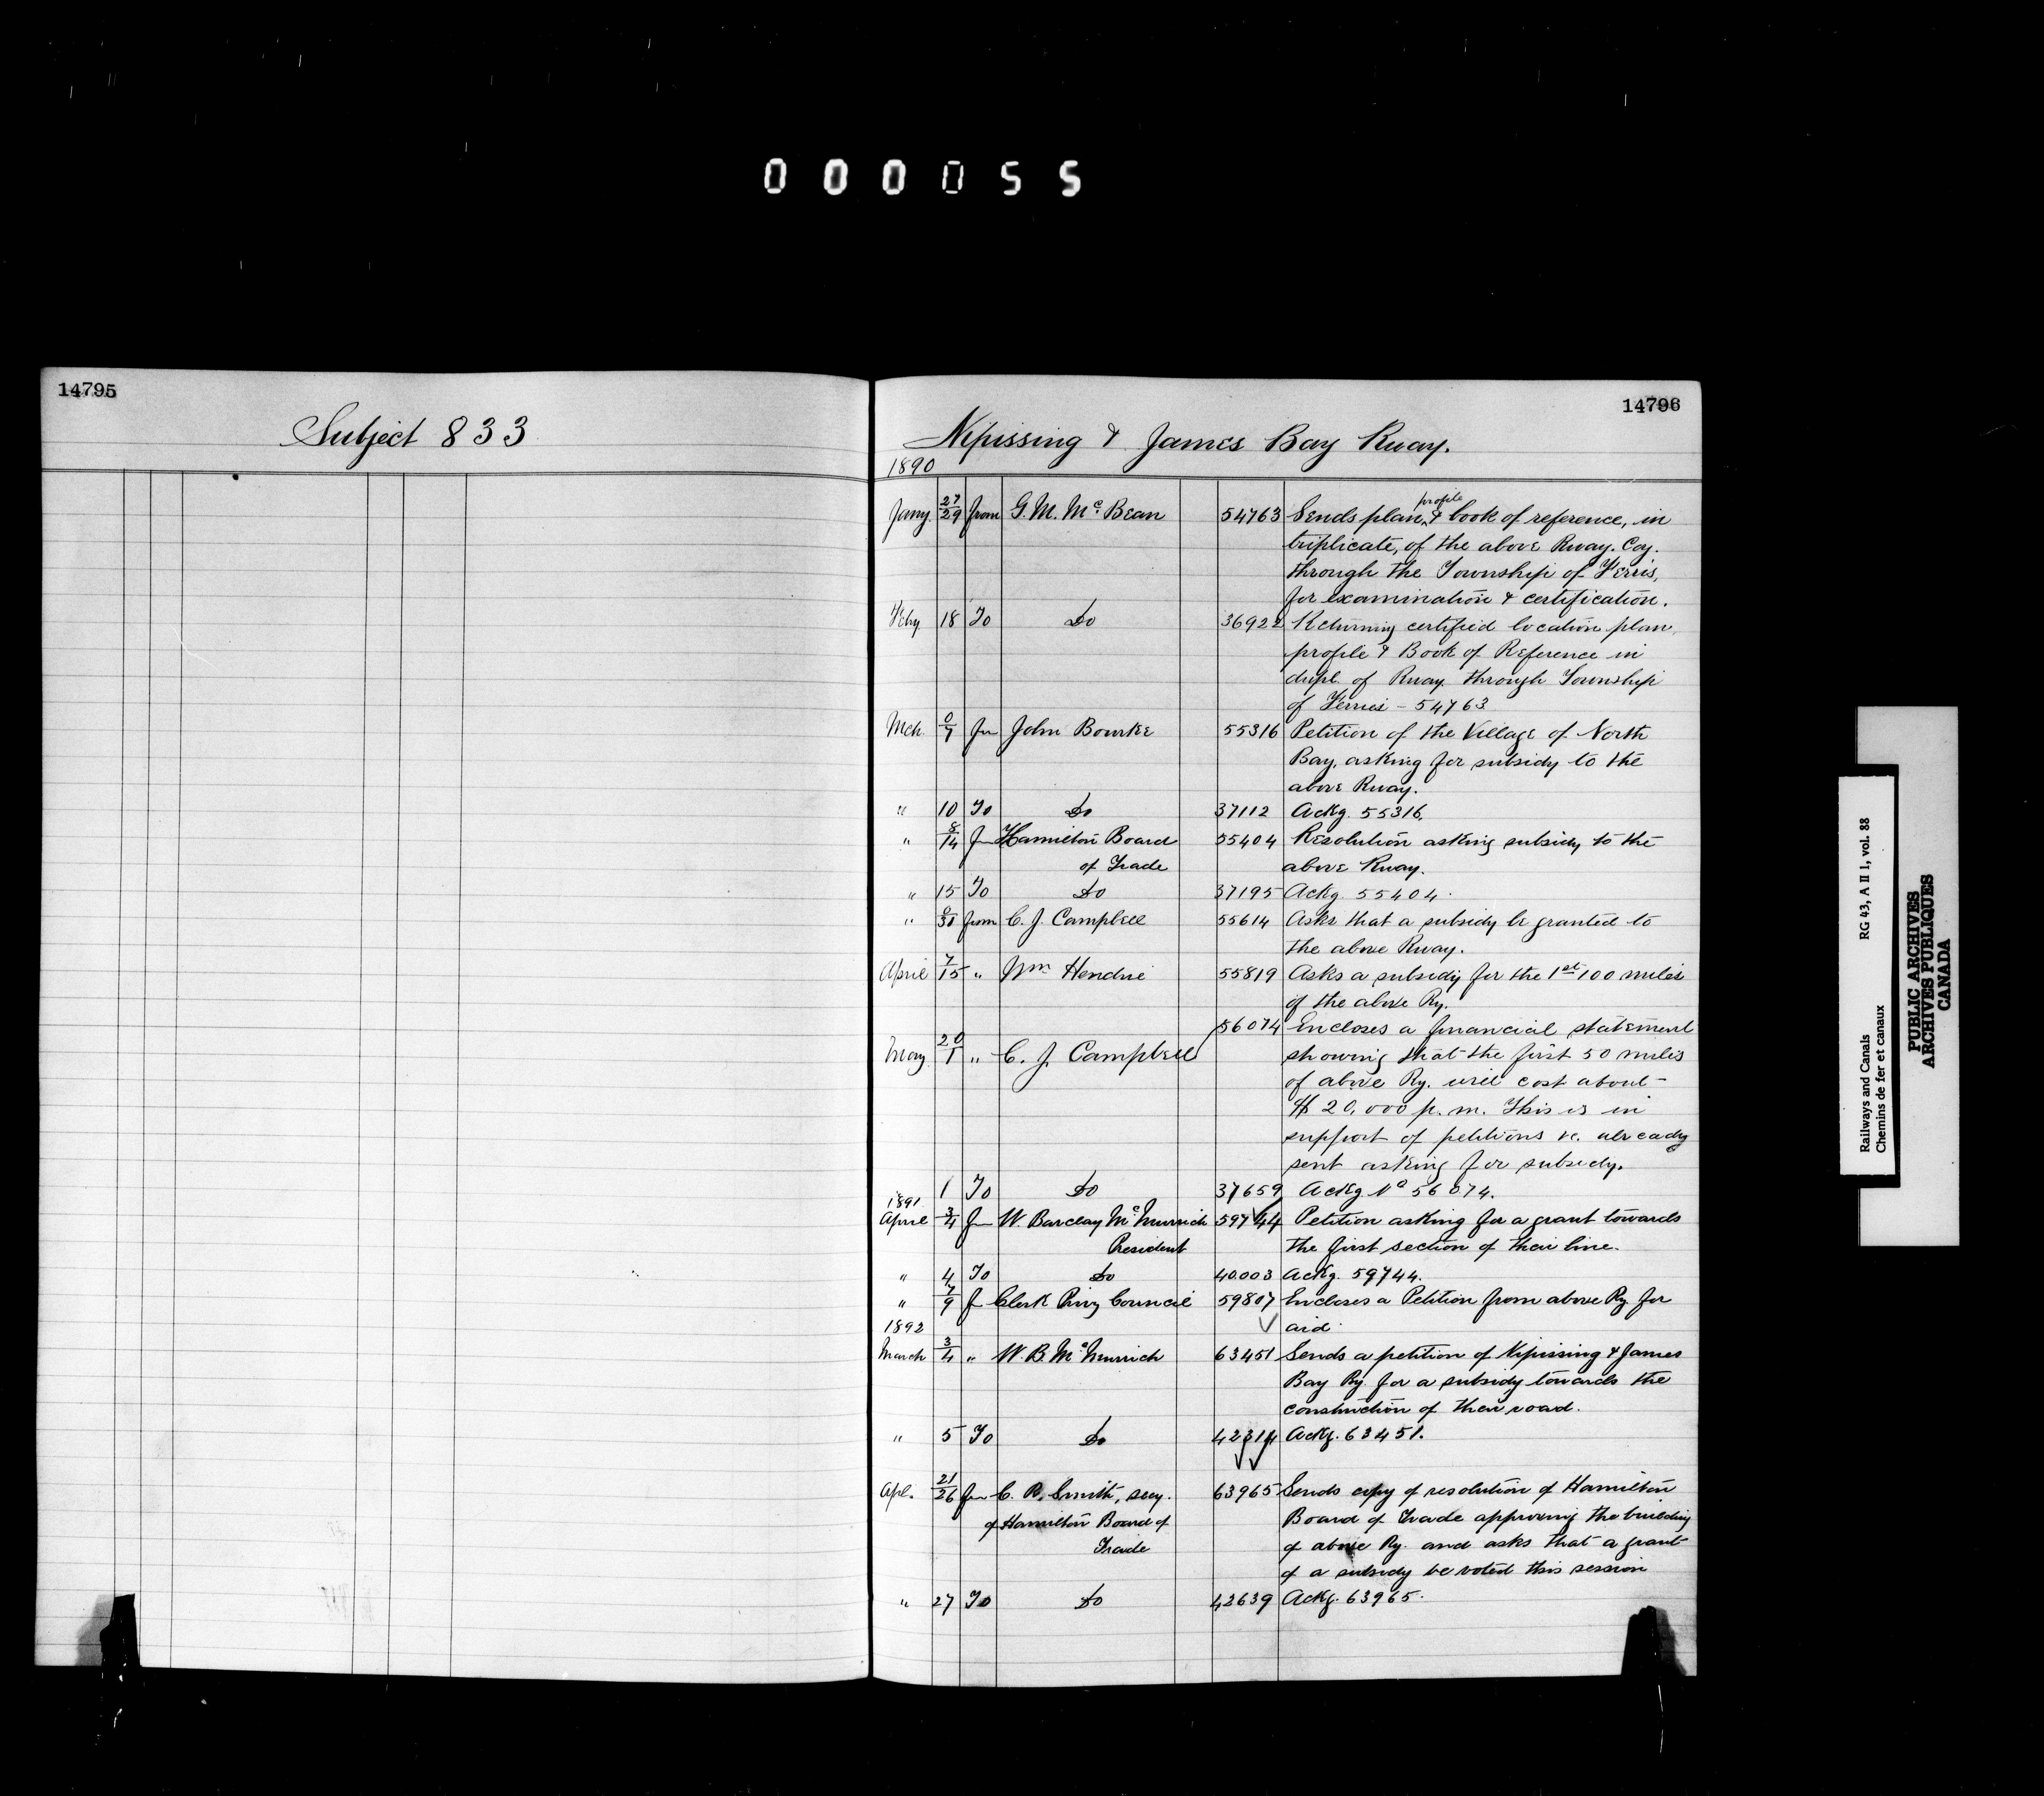 000055
14795
Subject 833
14796
Nipissing & James Bay Rway.
1890
Jany. 27/29 from G. M. McBean 54763 Sends plan, profile & book of reference, in
triplicate, of the above Rway. Coy.
through the Township of Ferris,
for examination & certification.
Feby 18 To Do 36922 Returning certified location plan,
profile & Book of Reference in
dupl. of Rway through Township
of Ferris - 54763
Mch. 0/7 fm John Bourke 55316 Petition of the Village of North
Bay, asking for subsidy to the
above Rway.
" 10 To Do 37112 Ackg. 55316.
" 8/14 fm Hamilton Board 55404 Resolution asking subsidy to the
of Trade above Rway.
" 15 To Do 37195 Ackg 55404.
" 0/31 from C. J. Campbell 55614 Asks that a subsidy be granted to
the above Rway.
April 7/15 " Wm Hendrie 55819 Asks a subsidy for the 1st 100 miles
of the above Ry.
56074 Encloses a financial statement
May 20/1 " C. J. Campbell showing that the first 50 miles
of above Ry. will cost about
$20,000 p. m. This is in
support of petitions &c. already
sent asking for subsidy.
1 To Do 37659 Ackg No 56074.
1891
April 3/4 fm W. Barclay McMurrich 59744 Petition asking for a grant towards
President the first section of their line.
" 4 To Do 40.003 Ackg. 59744.
" 7/9 f Clerk Privy Council 59807 Encloses a Petition from above Ry. for
1892 aid.
March 3/4 " W. B. McMurrich 63451 Sends a petition of Nipissing & James
Bay Ry. for a subsidy towards the
construction of their road.
" 5 To Do 42314 Ackg. 63451.
Apl. 21/26 fm C. R. Smith, secy. 63965 Sends copy of resolution of Hamilton
of Hamilton Board of Board of Trade approving the building
Trade of above Ry. and asks that a grant
of a subsidy be voted this session
" 27 To Do 42639 Ackg. 63965.
Railways and Canals RG 43, A II 1, vol. 88
Chemins de fer et canaux
PUBLIC ARCHIVES
ARCHIVES PUBLIQUES
CANADA